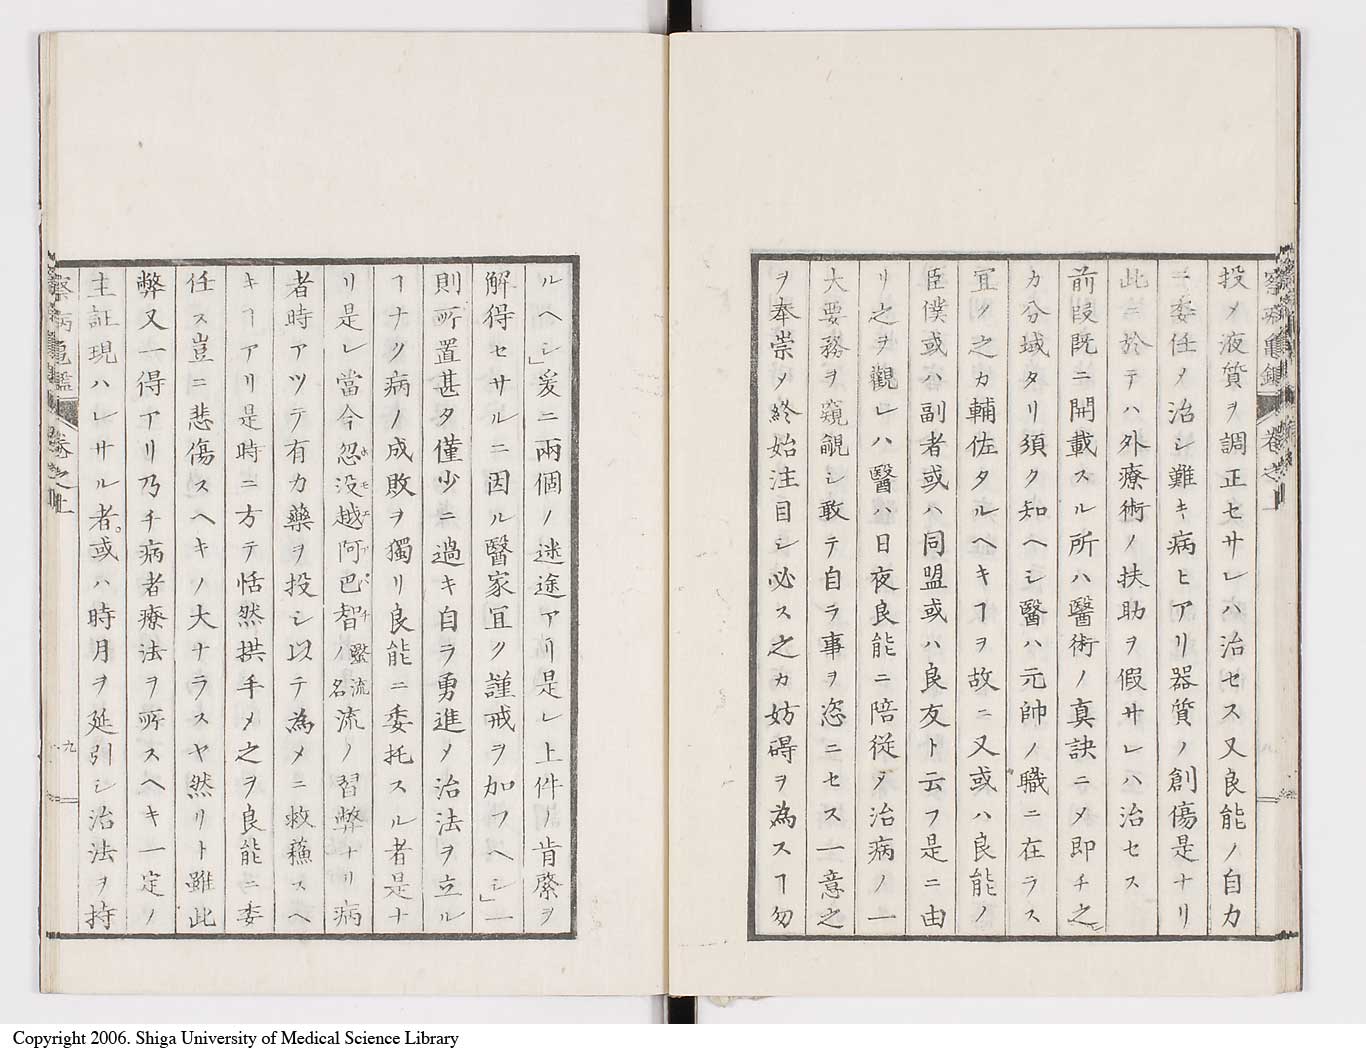 投メ液質ヲ調正セサレハ治セス又良能ノ自力
ニ委任ノ治シ難キ病ヒアリ器質ノ創傷是ナリ
此ニ於テハ外療術ノ扶助ヲ假サレハ治セス
前段既ニ開載スル所ハ醫術ノ真訣ニメ即チ之
カ分域タリ須ク知ヘシ醫ハ元帥ノ職ニ在ラス
冝ク之カ輔佐タルヘキヿヲ故ニ又或ハ良能ノ
臣僕或ハ副者或ハ同盟或ハ良友ト云フ是ニ由
リ之ヲ觀レハ醫ハ日夜良能ニ陪従メ治病ノ一
大要務ヲ窺覦シ敢テ自ラ事ヲ恣ニセス一意之
ヲ奉崇メ終始注目シ必ス之カ妨碍ヲ為スヿ勿
ルヘシ」爰ニ兩個ノ迷途アリ是レ上件ノ肯綮ヲ
解得セサルニ因ル醫家冝ク謹戒ヲ加フヘシ」一
則所置甚タ僅少ニ過キ自ラ勇進メ治法ヲ立ル
ヿナク病ノ成敗ヲ獨リ良能ニ委托スル者是ナ
リ是レ當今忽没越阿巴智ノ醫流名流ノ習弊ナリ病
者時アツテ有力藥ヲ投シ以テ為メニ救蘓スヘ
キヿアリ是時ニ方テ恬然拱手メ之ヲ良能ニ委
任ス豈ニ悲傷スヘキノ大ナラスヤ然リト雖此
弊又一得アリ乃チ病者療法ヲ所スヘキ一定ノ
主証現ハレサル者。或ハ時月ヲ延引シ治法ヲ持
察病亀鑑 卷之上
九